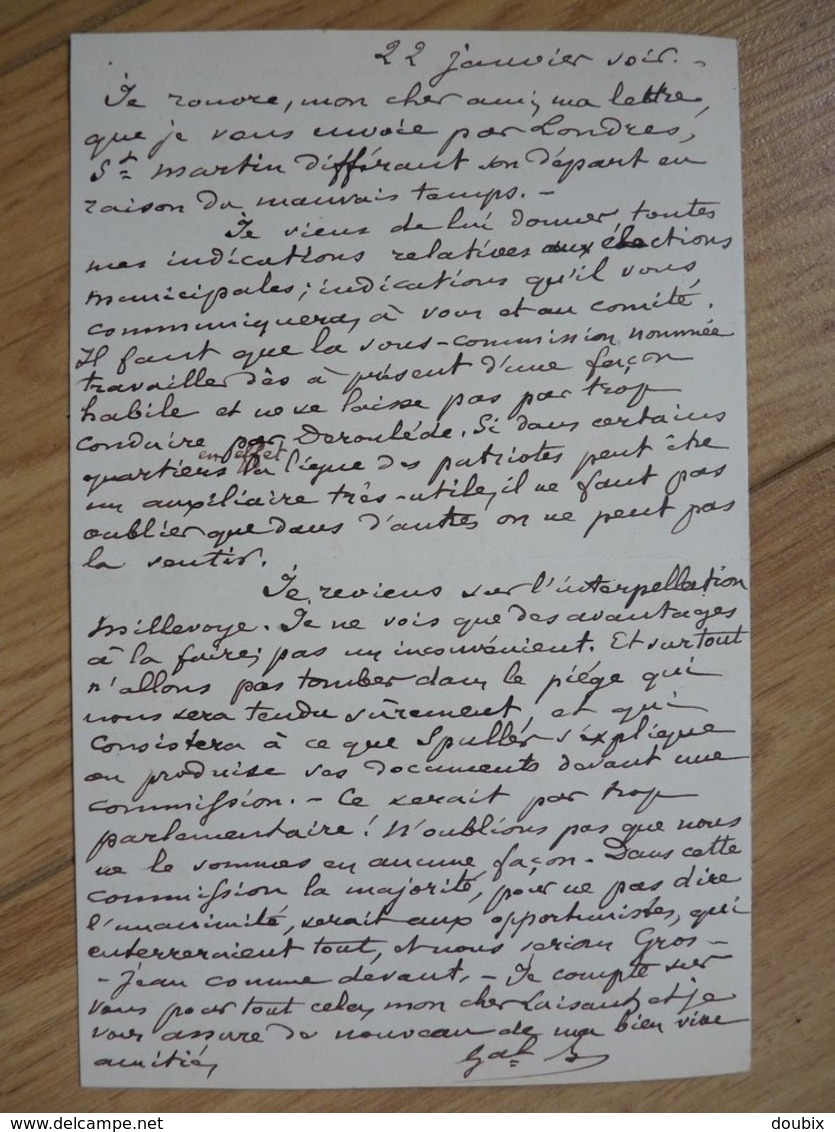 22 janvier soir. -
Je rouvre, mon cher ami, ma lettre,
que je vous envoie par Londres,
St martin différant son départ en
raison du mauvais temps. -
Je viens de lui donner toutes
mes indications relatives aux élections
municipales; indications qu'il vous
communiquera, à vous et au comité.
Il faut que la sous-commission nommée
travailler dès à présent d'une façon
habile et ne se laisse pas par trop
conduire par Deroulède. Si dans certains
en effet
quartiers la ligue des patriotes peut être
un auxiliaire très-utile, il ne faut pas
oublier que dans d'autres on ne peut pas
la sentir.
Je reviens sur l'interpellation
Millevoye. Je ne vois que des avantages
à la faire; pas un inconvénient. Et surtout
n'allons pas tomber dans le piége qui
nous sera tendu sûrement, et qui
consistera à ce que Spuller s'explique
ou produise ses documents devant une
commission. - Ce serait par trop
parlementaire! N'oublions pas que nous
ne le sommes en aucune façon - Dans cette
commission la majorité, pour ne pas dire
l'unanimité, serait aux opportunistes, qui
enterreraient tout, et nous serions Gros-
-jean comme devant. - Je compte sur
vous pour tout cela, mon cher Laisant, et je
vous assure de nouveau de ma bien vive
amitié,
Gal B
doubix